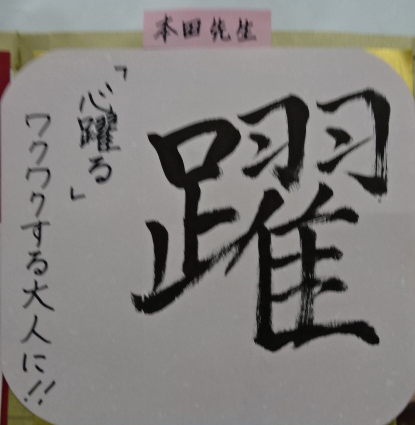 本田先生
躍
「心躍る」
ワクワクする大人に!!